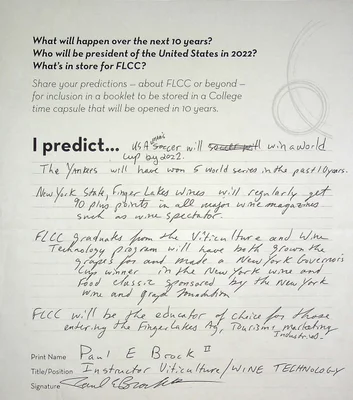 What will happen over the next 10 years?
Who will be president of the United States in 2022?
What's in store for FLCC?
Share your predictions – about FLCC or beyond –
for inclusion in a booklet to be stored in a College
time capsule that will be opened in 10 years.
I predict... USA men's Soccer will win a World
Cup by 2022.
The Yankees will have won 5 world series in the past 10 years.
New York State, Finger Lakes Wines will regularly get
90 plus points in all major wine magazines
such as wine spectator.
FLCC graduates from the Viticulture and Wine
Technology program will have both grown the
grapes for and made a New York Governor's
Cup winner in the New York wine and
Food Classic sponsored by the New York
Wine and grape foundation.
FLCC will be the educator of choice for those
entering the Finger Lakes Ag, Tourism, Marketing
Industries.
Print Name Paul E Brock II
Title/Position Instructor Viticulture/WINE TECHNOLOGY
Signature Paul E Brock II